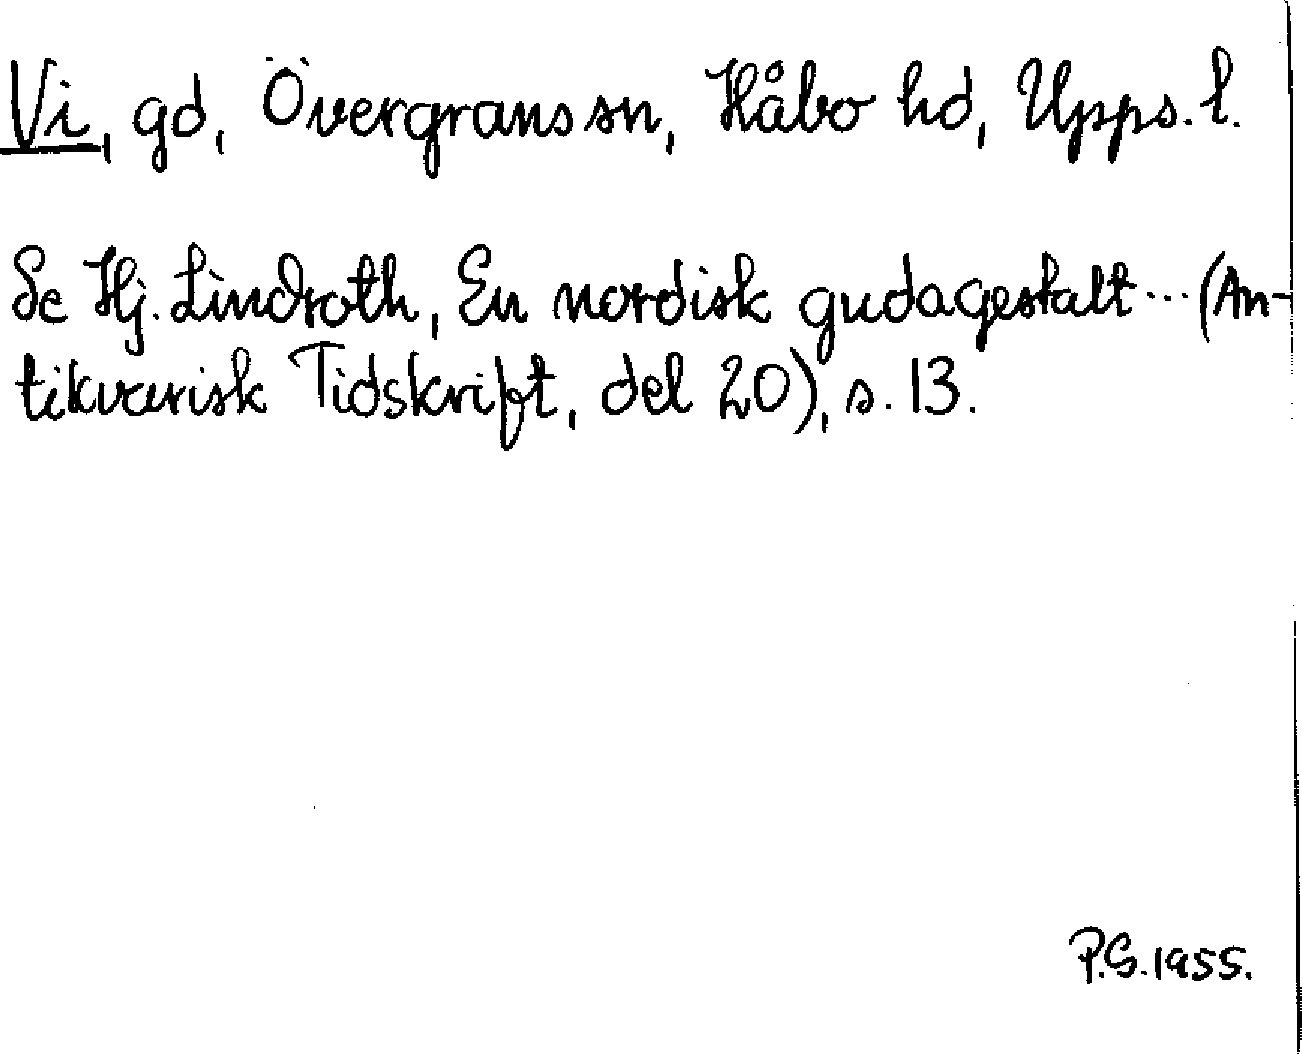 Vi, gd, Övergrans sn, Håbo hd, Upps. l.
Se Hj. Lindroth, En nordisk gudagestalt... (An-
tikvarisk Tidskrift, del 20), s. 13.
P.G. 1955.